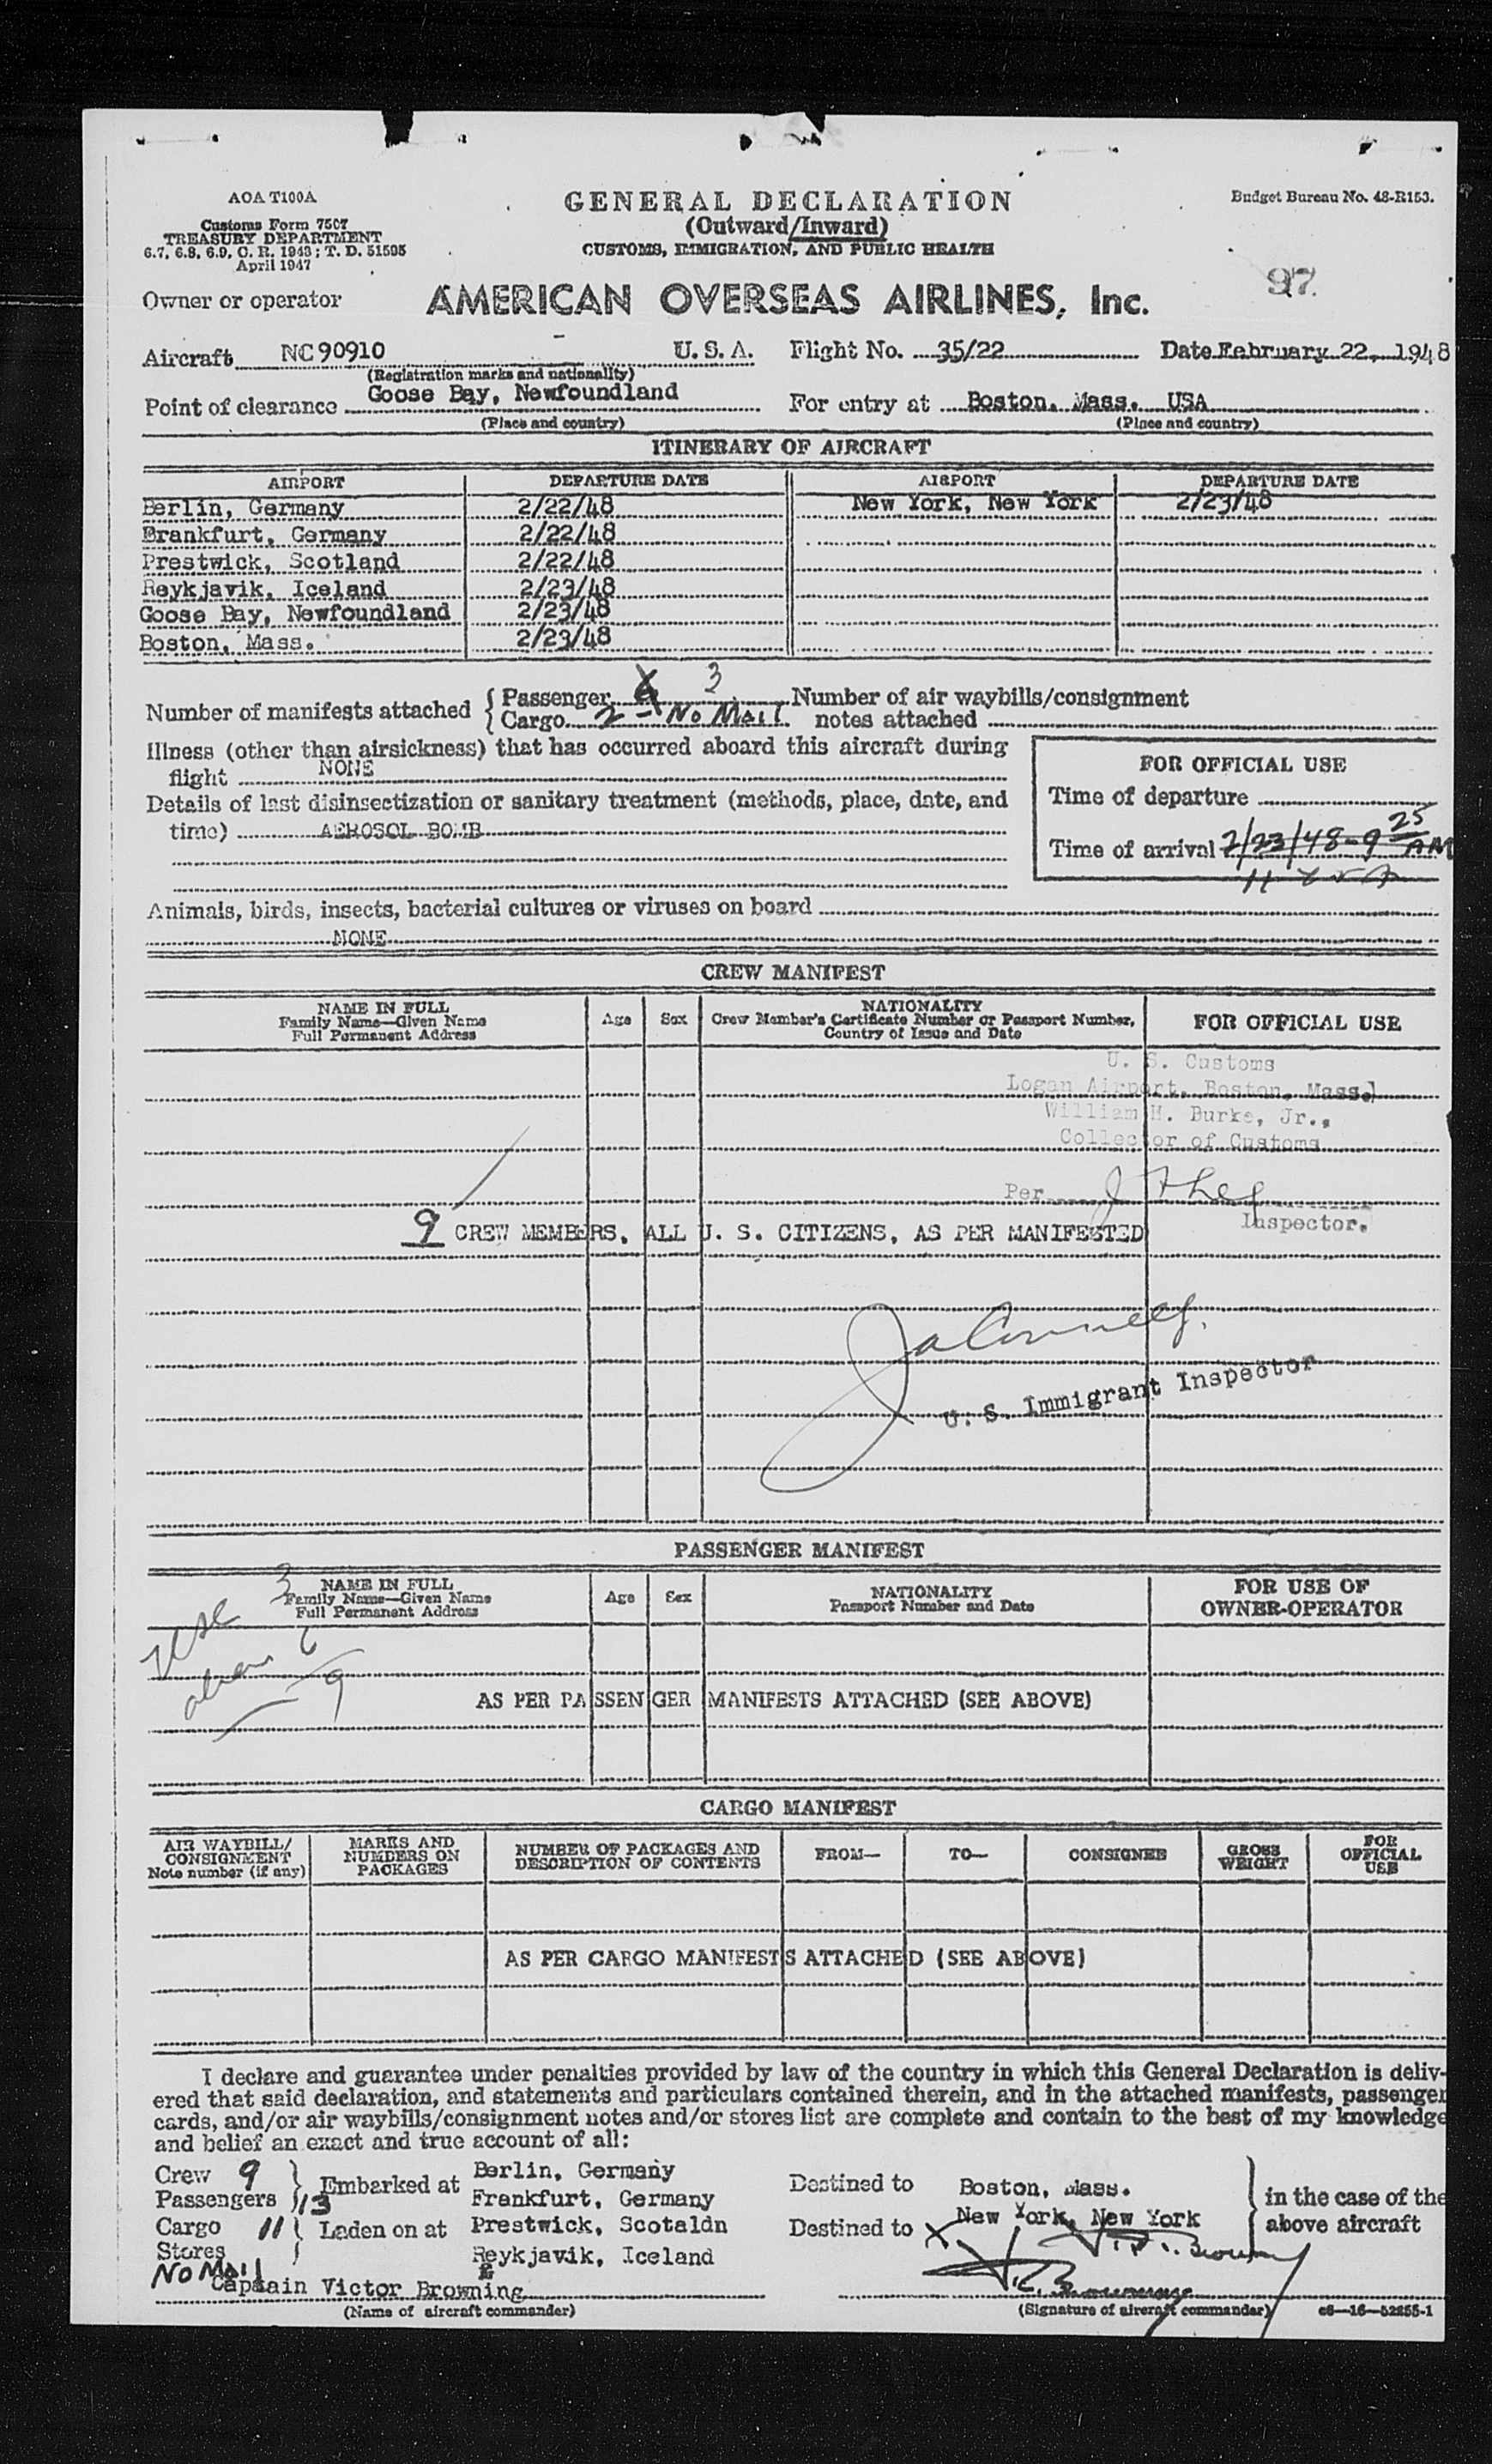 AOA T100A
Customs Form 7507
TREASURY DEPARTMENT
6.7, 6.8, 6.9, C. R. 1943; T. D. 51595
April 1947
GENERAL DECLARATION
(Outward/Inward)
CUSTOMS, IMMIGRATION, AND PUBLIC HEALTH
Budget Bureau No. 48-R153.
97
Owner or operator AMERICAN OVERSEAS AIRLINES, Inc.
Aircraft NC90910 U. S. A. Flight No. 35/22 Date February 22, 1948
(Registration marks and nationality)
Point of clearance Goose Bay, Newfoundland For entry at Boston, Mass. USA
(Place and country) (Place and country)
ITINERARY OF AIRCRAFT
AIRPORT DEPARTURE DATE AIRPORT DEPARTURE DATE
Berlin, Germany 2/22/48 New York, New York 2/23/48
Frankfurt, Germany 2/22/48
Prestwick, Scotland 2/22/48
Reykjavik, Iceland 2/23/48
Goose Bay, Newfoundland 2/23/48
Boston, Mass. 2/23/48
Number of manifests attached { Passenger 3 Number of air waybills/consignment
Cargo 2 - No Mail notes attached
Illness (other than airsickness) that has occurred aboard this aircraft during
flight NONE
Details of last disinsectization or sanitary treatment (methods, place, date, and
time) AEROSOL BOMB
FOR OFFICIAL USE
Time of departure
Time of arrival 2/23/48-9 25 AM
Animals, birds, insects, bacterial cultures or viruses on board
NONE
CREW MANIFEST
NAME IN FULL
Family Name—Given Name
Full Permanent Address
Age Sex
NATIONALITY
Crew Member's Certificate Number or Passport Number,
Country of Issue and Date
FOR OFFICIAL USE
U. S. Customs
Logan Airport, Boston, Mass.
William H. Burke, Jr.,
Collector of Customs
Per
Inspector.
9 CREW MEMBERS, ALL U. S. CITIZENS, AS PER MANIFESTED
U. S. Immigrant Inspector
PASSENGER MANIFEST
3
NAME IN FULL
Family Name—Given Name
Full Permanent Address
Age Sex
NATIONALITY
Passport Number and Date
FOR USE OF
OWNER-OPERATOR
6
9
AS PER PASSENGER MANIFESTS ATTACHED (SEE ABOVE)
CARGO MANIFEST
AIR WAYBILL/
CONSIGNMENT
Note number (if any)
MARKS AND
NUMBERS ON
PACKAGES
NUMBER OF PACKAGES AND
DESCRIPTION OF CONTENTS
FROM— TO— CONSIGNEE
GROSS
WEIGHT
FOR
OFFICIAL
USE
AS PER CARGO MANIFESTS ATTACHED (SEE ABOVE)
I declare and guarantee under penalties provided by law of the country in which this General Declaration is deliv-
ered that said declaration, and statements and particulars contained therein, and in the attached manifests, passenger
cards, and/or air waybills/consignment notes and/or stores list are complete and contain to the best of my knowledge
and belief an exact and true account of all:
Crew 9 } Embarked at Berlin, Germany Destined to Boston, Mass. } in the case of the
Passengers 13 Frankfurt, Germany
Cargo 11 } Laden on at Prestwick, Scotaldn Destined to X New York, New York above aircraft
Stores Reykjavik, Iceland
No Mail
Captain Victor Browning
(Name of aircraft commander) (Signature of aircraft commander) c6—16—52255-1